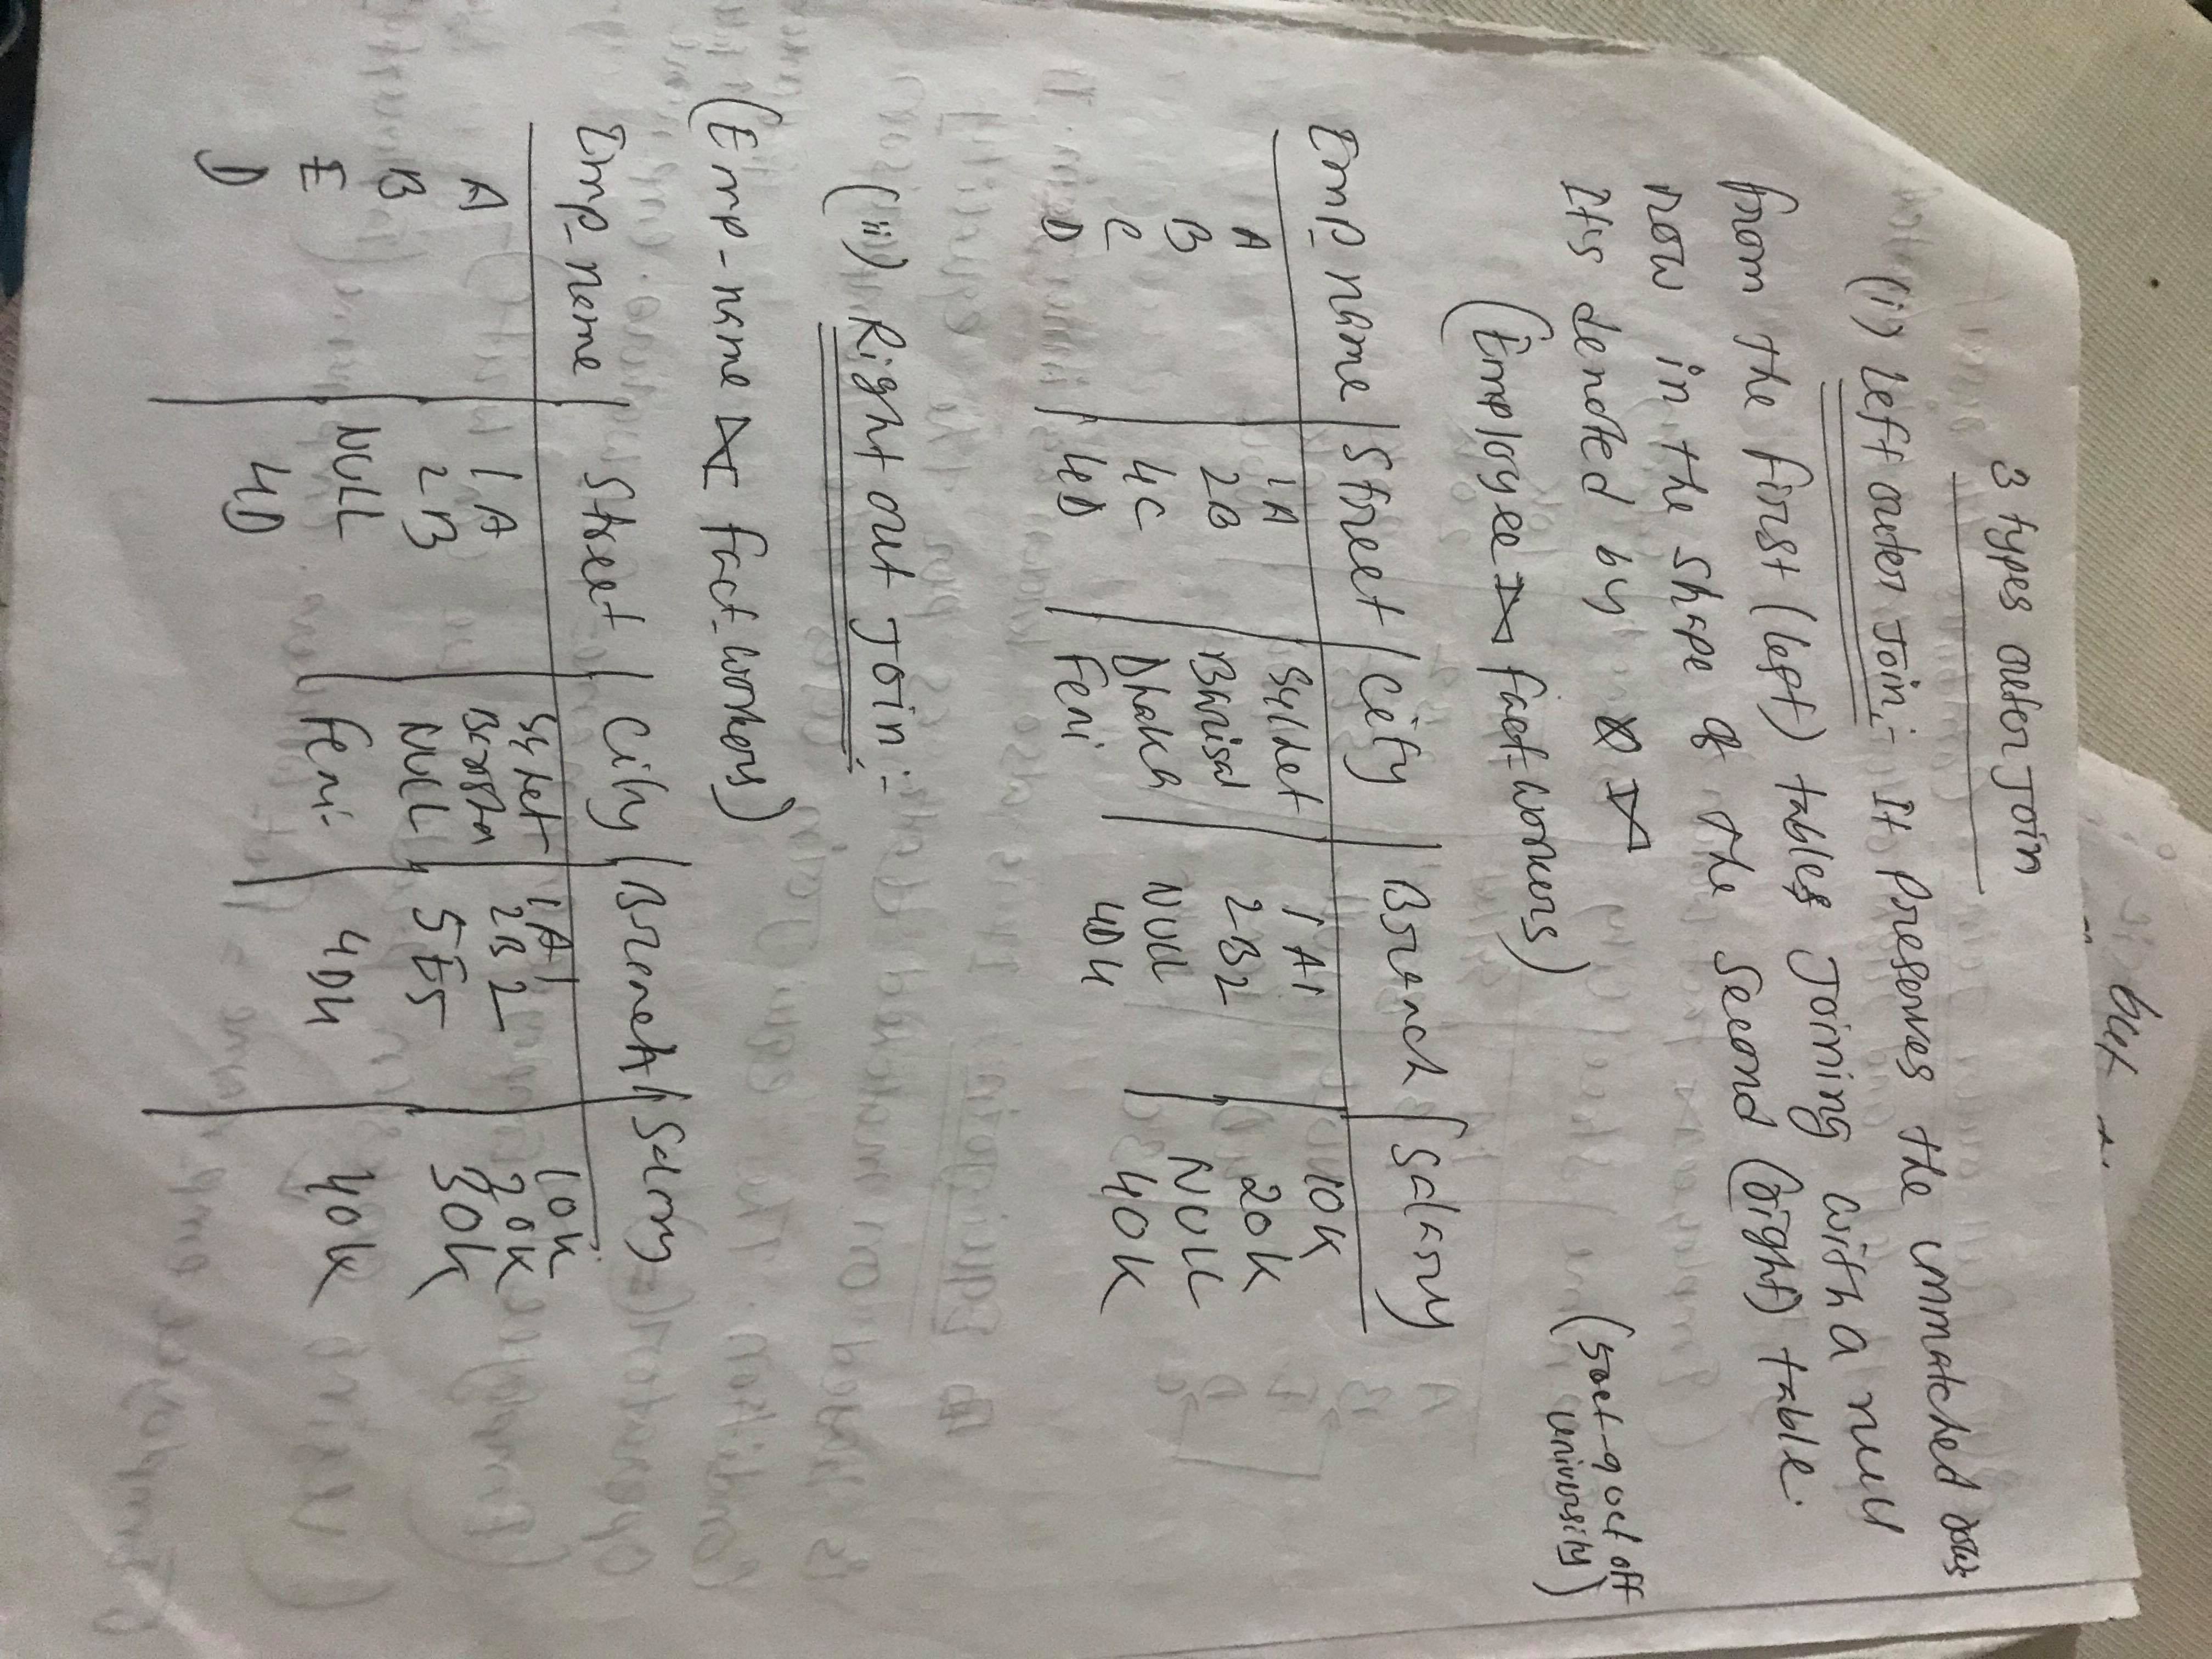 but
3 types outer Join
(i) Left outer Join :- It Preserves the unmatched rows
from the first (left) tables Joining with a null
row in the shape of the second (right) table.
It's denoted by ⟕
(5oct-9oct off
university)
(Employee ⟕ fact_workers)
Emp_name | Street | City | Branch | Salary
A 1A Sylhet 1A1 10K
B 2B Barisal 2B2 20K
C 4C Dhaka NULL NULL
D 4D Feni 4D4 40K
(ii) Right out Join :-
(Emp_name ⟖ fact_workers)
Emp_name | Street | City | Branch | Salary
A 1A Sylhet 1A1 10K
B 2B 2B2 20K
E NULL NULL 5E5 30K
D 4D Feni 4D4 40K